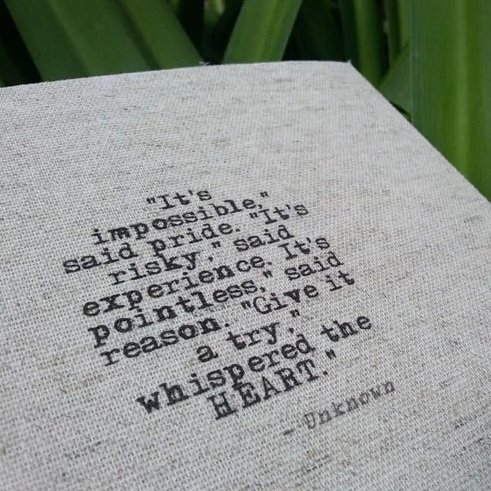 "It's
impossible,"
said pride. "It's
risky," said
experience. It's
pointless," said
reason. "Give it
a try,"
whispered the
HEART."
- Unknown